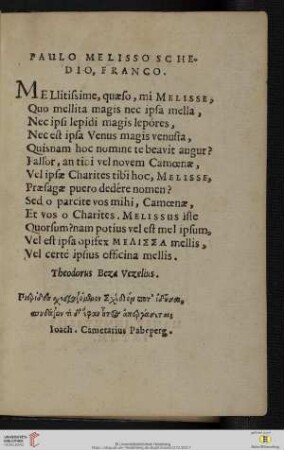 PAULO MELISSO SCHE-
DIO, FRANCO.
MELlitissime, quæso, mi MELISSE,
Quo mellita magis nec ipsa mella,
Nec ipsi lepidi magis lepores,
Nec est ipsa Venus magis venusta,
Quisnam hoc nomine te beavit augur?
Fallor, an tibi vel novem Camœnæ,
Vel ipsæ Charites tibi hoc, MELISSE,
Præsagæ puero dedêre nomen?
Sed o parcite vos mihi, Camœnæ,
Et vos o Charites. MELISSUS iste
Quorsum? nam potius vel est mel ipsum,
Vel est ipsa opifex ΜΕΛΙΣΣΑ mellis,
Vel certè ipsius officina mellis.
Theodorus Beza Vezelius.
Ioach. Camerarius Pabeperg.